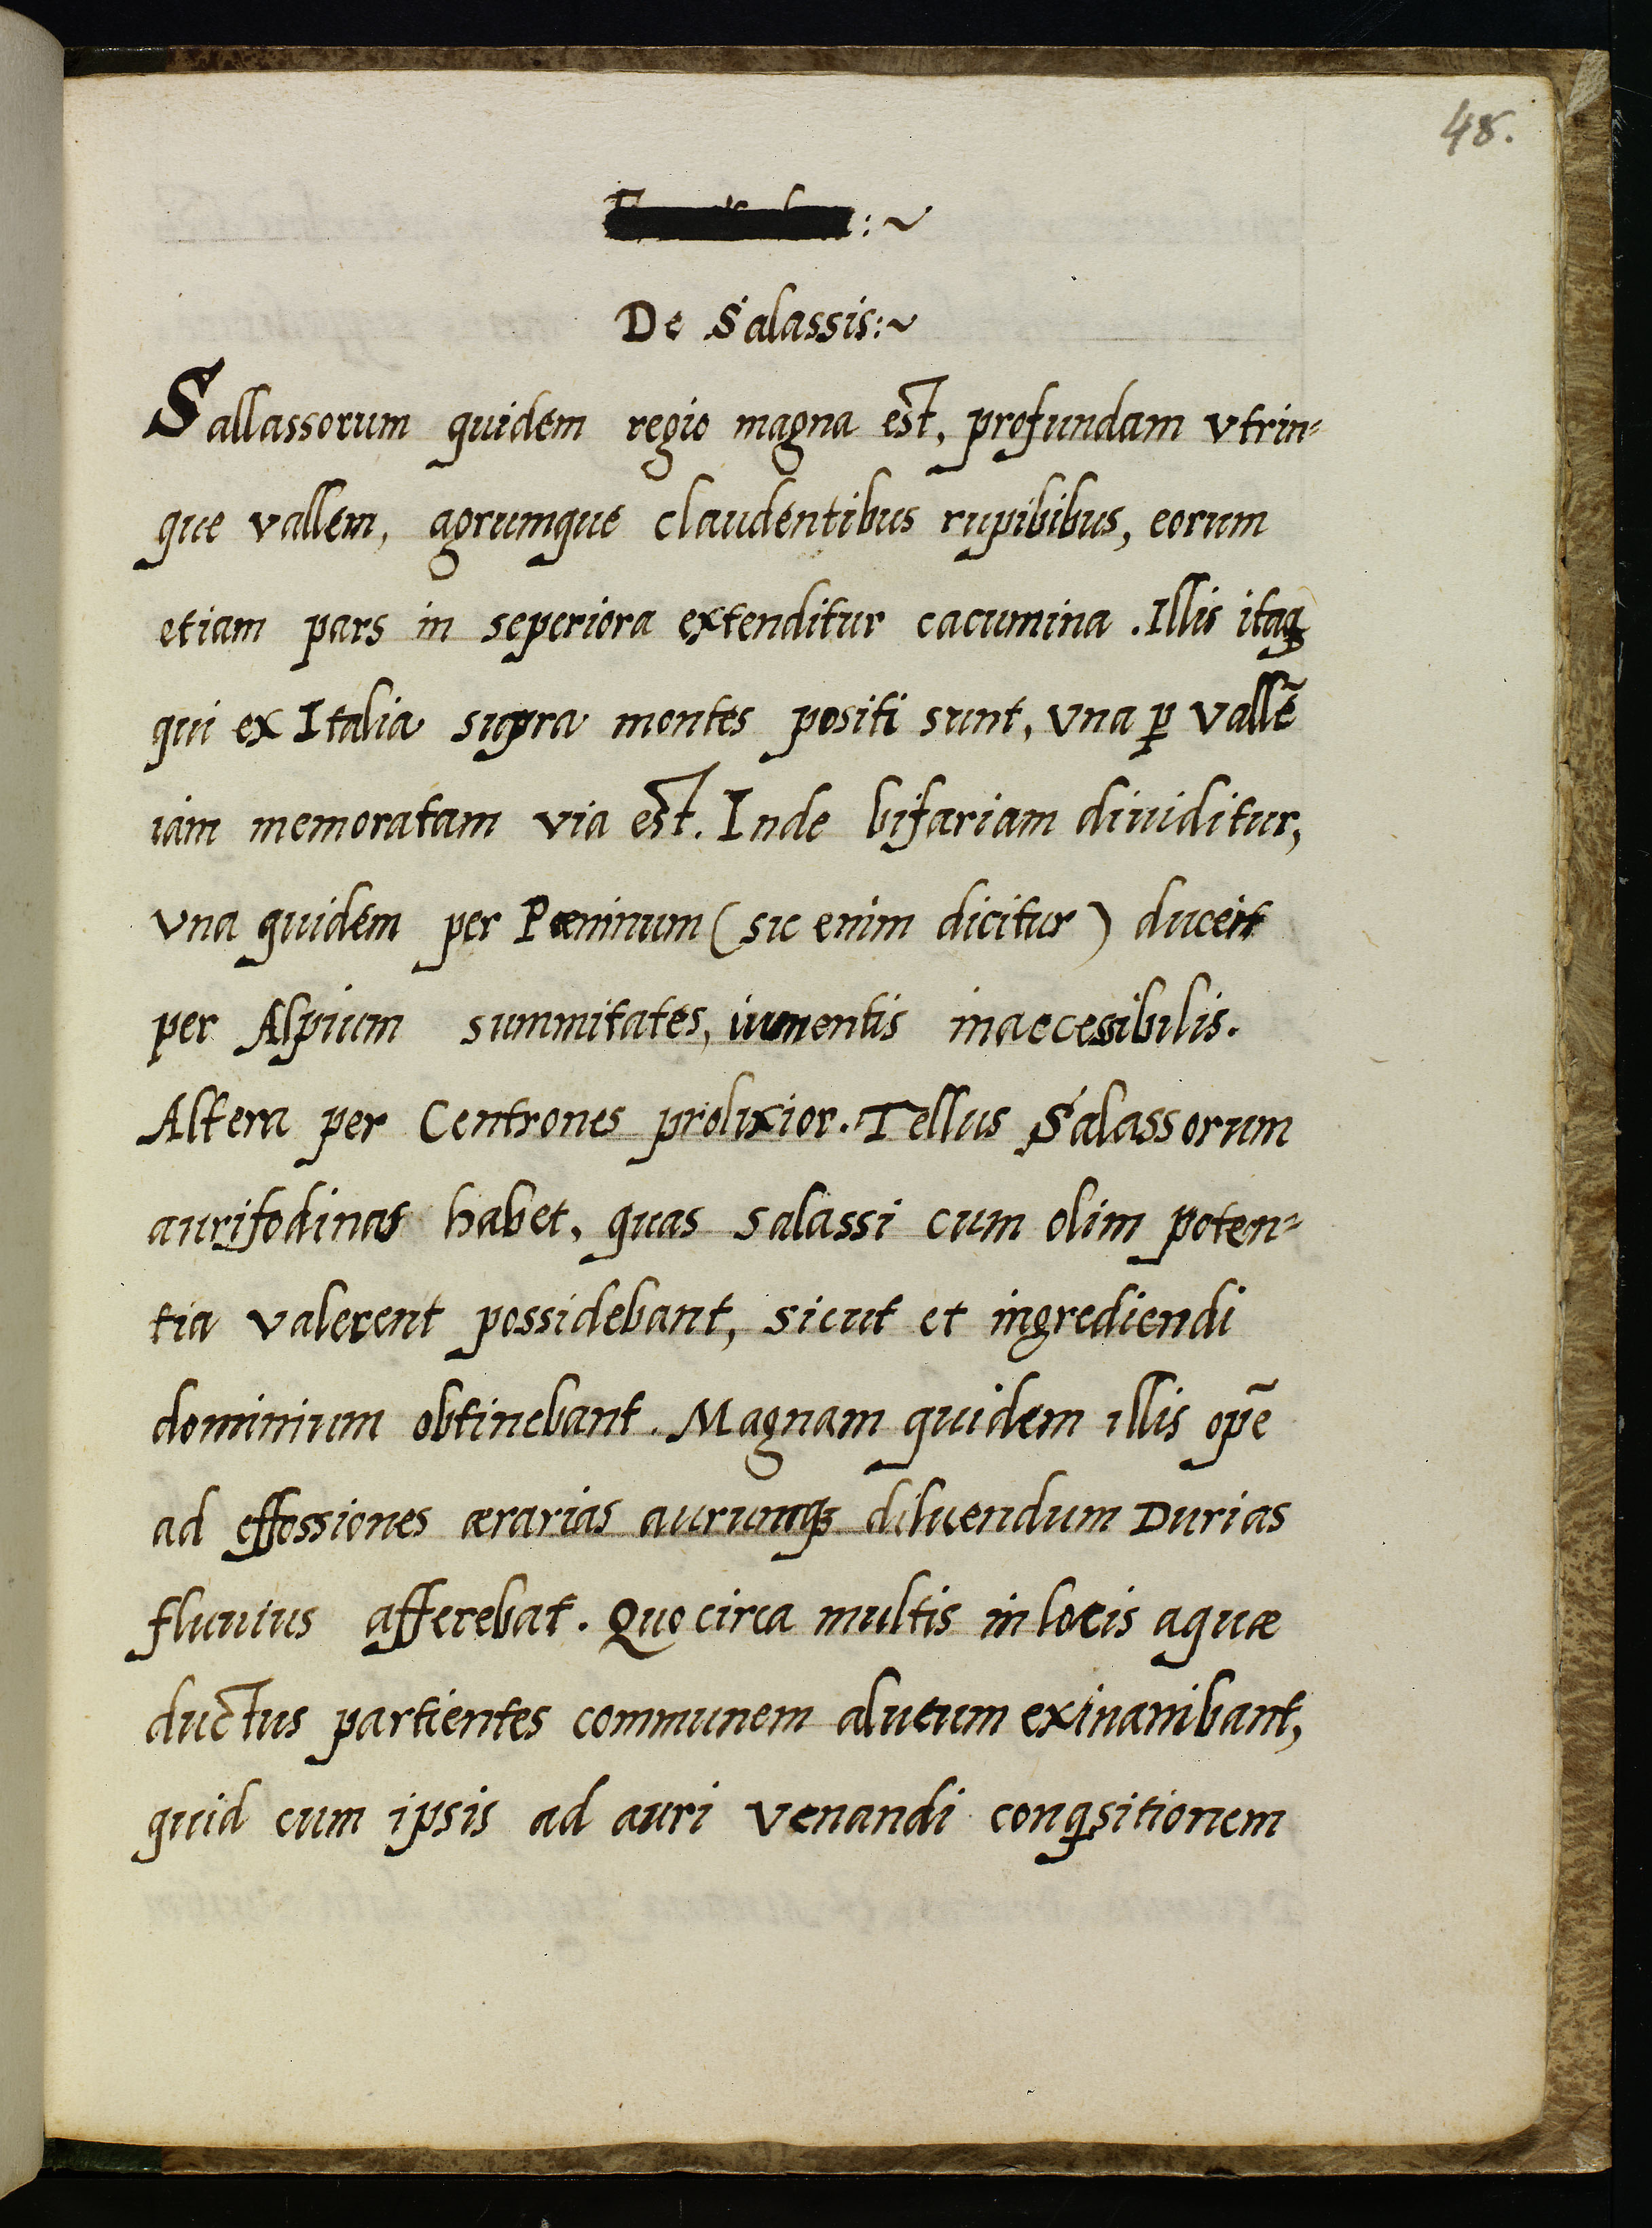 48.
:~
De Salassis:~
Sallassorum quidem regio magna est, profundam vtrin-
que vallem, agrumque claudentibus rupibibus, eorum
etiam pars in seperiora extenditur cacumina. Illis itaqꝫ
qui ex Italia supra montes positi sunt, vna ꝑ vallē
iam memoratam via est. Inde bifariam diuiditur,
vna quidem per Pœninum (sic enim dicitur) duceit
per Alpium summitates, iumentis inaccessibilis.
Altera per Centrones prolixior. Tellus Salassorum
aurifodinas habet, quas salassi cum olim poten-
tia valerent possidebant, sicut et ingrediendi
dominium obtinebant. Magnam quidem illis opē
ad effossiones ærarias aurumqꝫ diluendum Durias
fluuius afferebat. Quocirca multis in locis aquæ
ductus partientes communem alueum exinanibant,
quid cum ipsis ad auri venandi conqsitionem